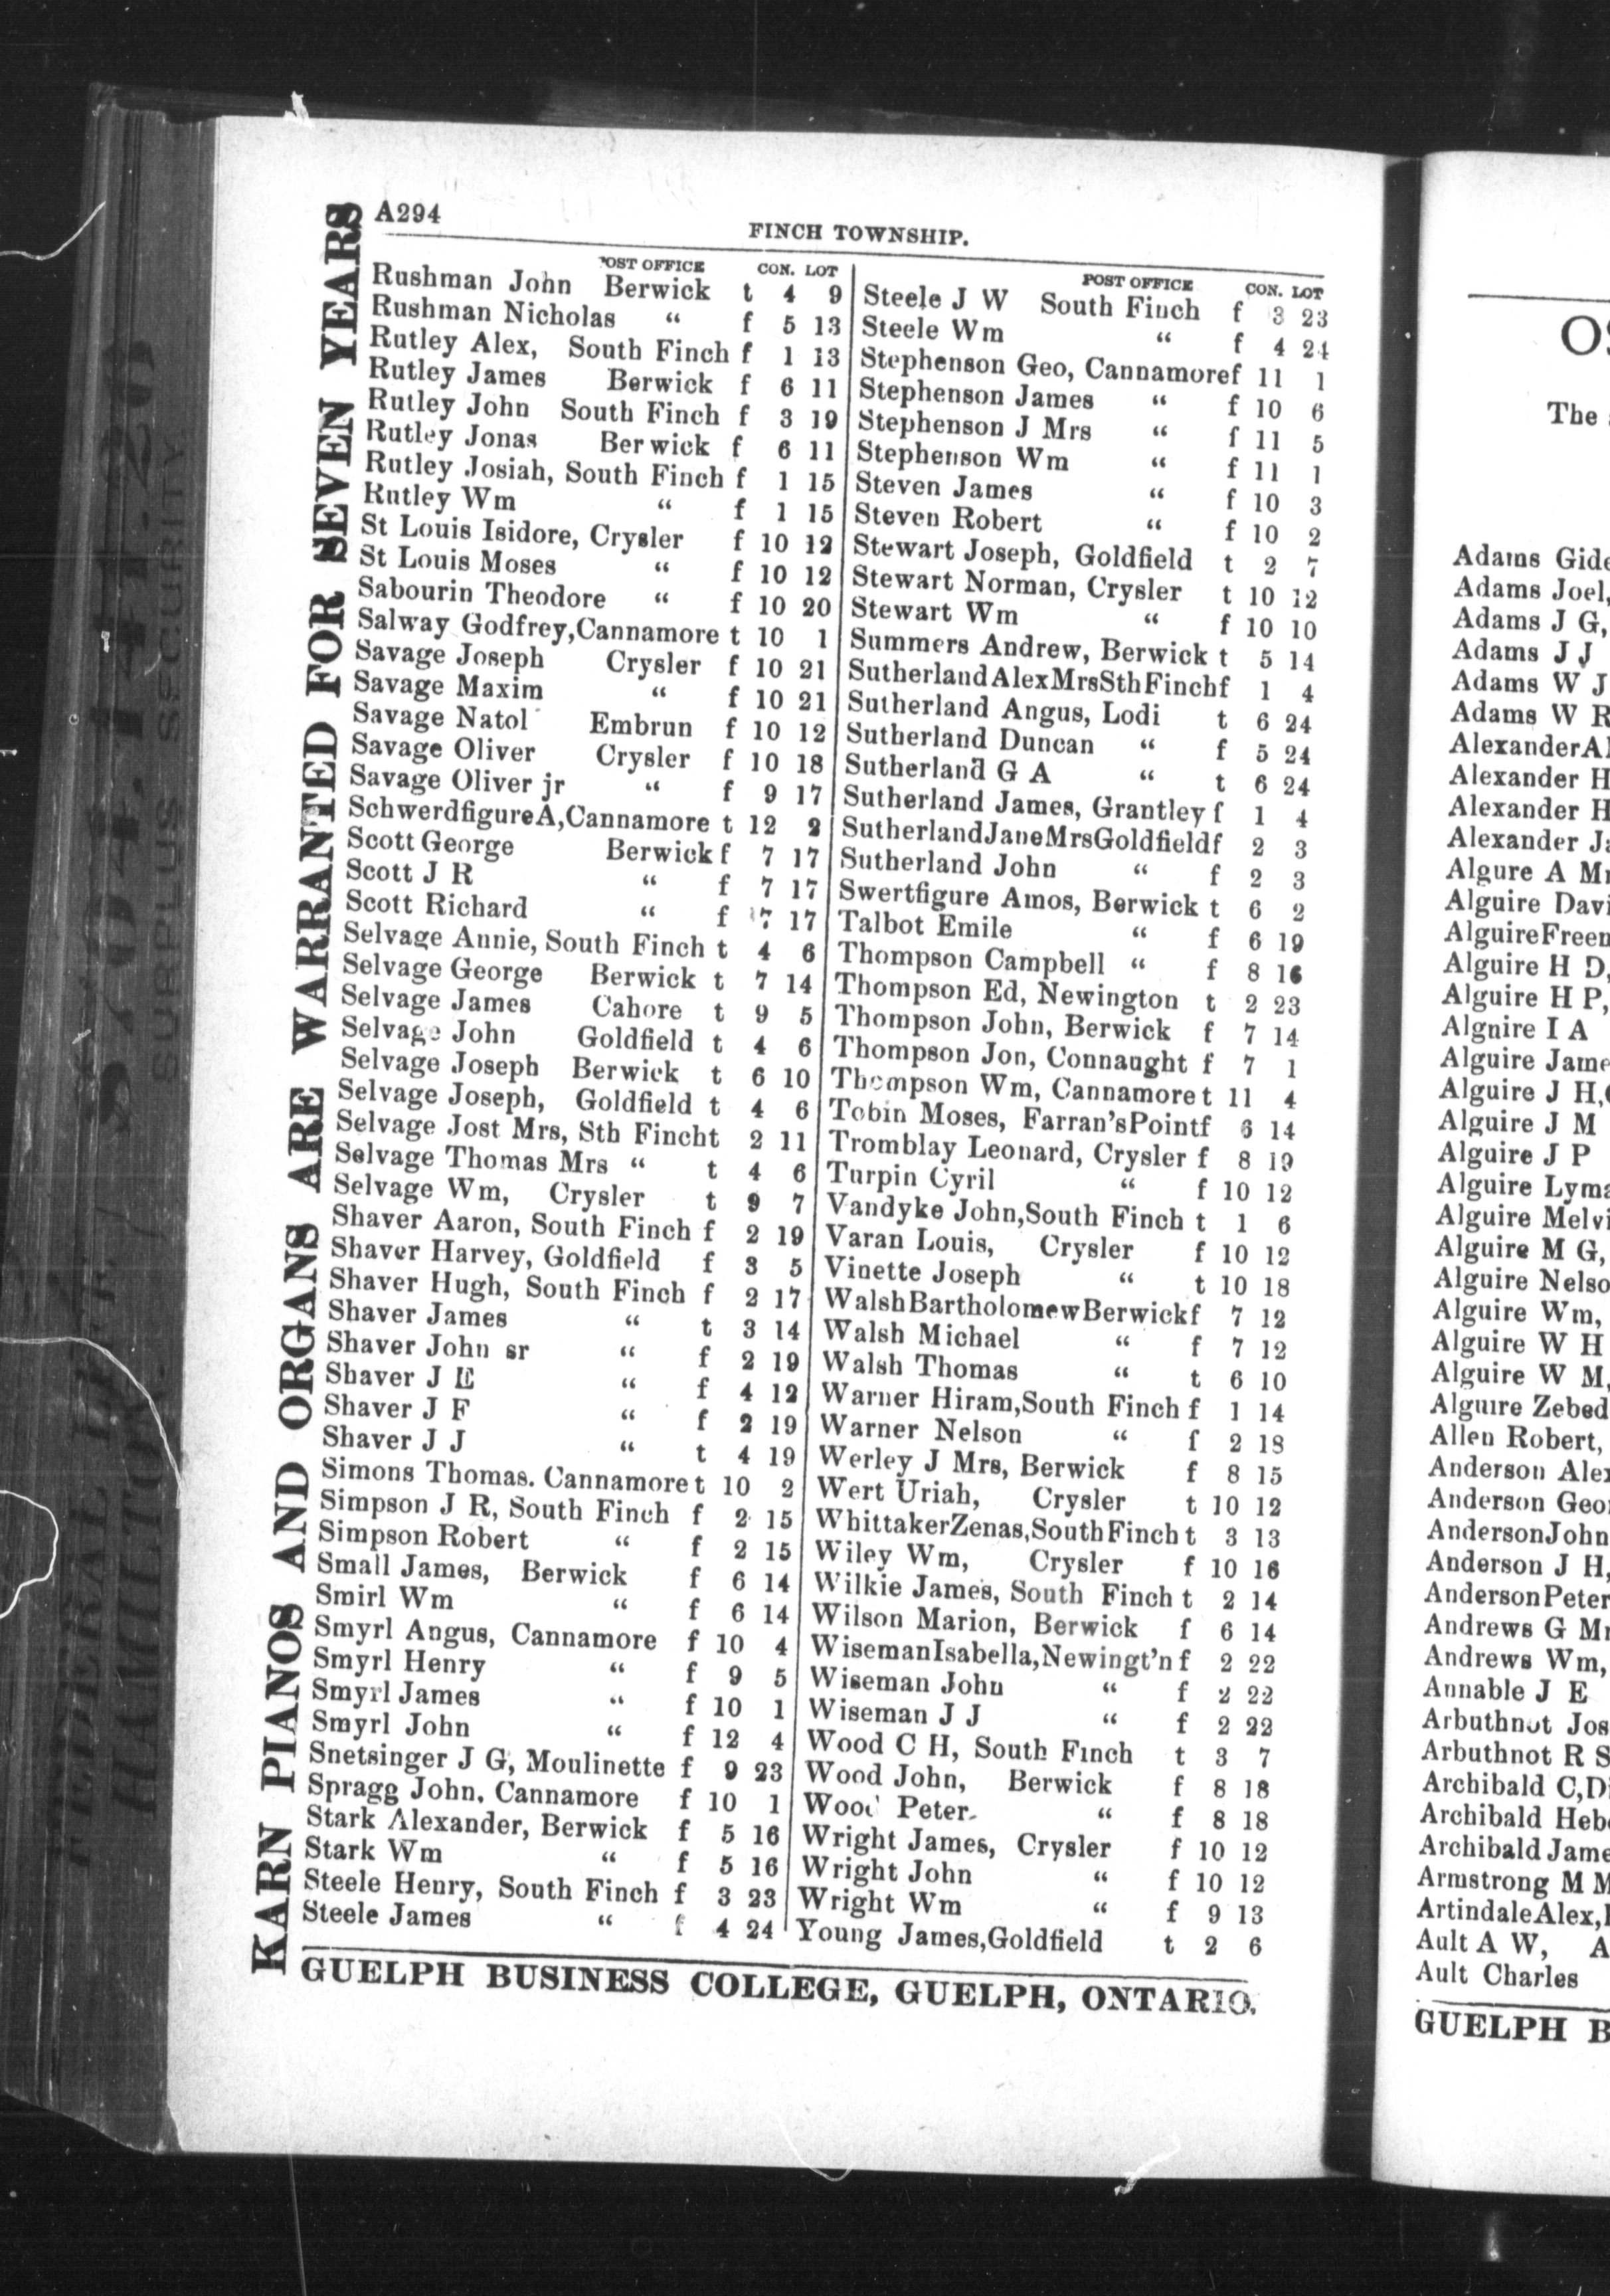 A294
FINCH TOWNSHIP.
KARN PIANOS AND ORGANS ARE WARRANTED FOR SEVEN YEARS
POST OFFICE CON. LOT
Rushman John Berwick t 4 9
Rushman Nicholas “ f 5 13
Rutley Alex, South Finch f 1 13
Rutley James Berwick f 6 11
Rutley John South Finch f 3 19
Rutley Jonas Berwick f 6 11
Rutley Josiah, South Finch f 1 15
Rutley Wm “ f 1 15
St Louis Isidore, Crysler f 10 12
St Louis Moses “ f 10 12
Sabourin Theodore “ f 10 20
Salway Godfrey,Cannamore t 10 1
Savage Joseph Crysler f 10 21
Savage Maxim “ f 10 21
Savage Natol Embrun f 10 12
Savage Oliver Crysler f 10 18
Savage Oliver jr “ f 9 17
SchwerdfigureA,Cannamore t 12 2
Scott George Berwick f 7 17
Scott J R “ f 7 17
Scott Richard “ f 7 17
Selvage Annie, South Finch t 4 6
Selvage George Berwick t 7 14
Selvage James Cahore t 9 5
Selvage John Goldfield t 4 6
Selvage Joseph Berwick t 6 10
Selvage Joseph, Goldfield t 4 6
Selvage Jost Mrs, Sth Fincht 2 11
Selvage Thomas Mrs “ t 4 6
Selvage Wm, Crysler t 9 7
Shaver Aaron, South Finch f 2 19
Shaver Harvey, Goldfield f 3 5
Shaver Hugh, South Finch f 2 17
Shaver James “ t 3 14
Shaver John sr “ f 2 19
Shaver J E “ f 4 12
Shaver J F “ f 2 19
Shaver J J “ t 4 19
Simons Thomas. Cannamore t 10 2
Simpson J R, South Finch f 2 15
Simpson Robert “ f 2 15
Small James, Berwick f 6 14
Smirl Wm “ f 6 14
Smyrl Angus, Cannamore f 10 4
Smyrl Henry “ f 9 5
Smyrl James “ f 10 1
Smyrl John “ f 12 4
Snetsinger J G, Moulinette f 9 23
Spragg John, Cannamore f 10 1
Stark Alexander, Berwick f 5 16
Stark Wm “ f 5 16
Steele Henry, South Finch f 3 23
Steele James “ f 4 24
POST OFFICE CON. LOT
Steele J W South Finch f 3 23
Steele Wm “ f 4 24
Stephenson Geo, Cannamoref 11 1
Stephenson James “ f 10 6
Stephenson J Mrs “ f 11 5
Stephenson Wm “ f 11 1
Steven James “ f 10 3
Steven Robert “ f 10 2
Stewart Joseph, Goldfield t 2 7
Stewart Norman, Crysler t 10 12
Stewart Wm “ f 10 10
Summers Andrew, Berwick t 5 14
SutherlandAlexMrsSthFinchf 1 4
Sutherland Angus, Lodi t 6 24
Sutherland Duncan “ f 5 24
Sutherland G A “ t 6 24
Sutherland James, Grantley f 1 4
SutherlandJaneMrsGoldfieldf 2 3
Sutherland John “ f 2 3
Swertfigure Amos, Berwick t 6 2
Talbot Emile “ f 6 19
Thompson Campbell “ f 8 16
Thompson Ed, Newington t 2 23
Thompson John, Berwick f 7 14
Thompson Jon, Connaught f 7 1
Thompson Wm, Cannamore t 11 4
Tobin Moses, Farran'sPointf 6 14
Tromblay Leonard, Crysler f 8 19
Turpin Cyril “ f 10 12
Vandyke John,South Finch t 1 6
Varan Louis, Crysler f 10 12
Vinette Joseph “ t 10 18
WalshBartholomewBerwickf 7 12
Walsh Michael “ f 7 12
Walsh Thomas “ t 6 10
Warner Hiram,South Finch f 1 14
Warner Nelson “ f 2 18
Werley J Mrs, Berwick f 8 15
Wert Uriah, Crysler t 10 12
WhittakerZenas,SouthFinch t 3 13
Wiley Wm, Crysler f 10 16
Wilkie James, South Finch t 2 14
Wilson Marion, Berwick f 6 14
WisemanIsabella,Newingt'n f 2 22
Wiseman John “ f 2 22
Wiseman J J “ f 2 22
Wood C H, South Finch t 3 7
Wood John, Berwick f 8 18
Wood Peter “ f 8 18
Wright James, Crysler f 10 12
Wright John “ f 10 12
Wright Wm “ f 9 13
Young James,Goldfield t 2 6
GUELPH BUSINESS COLLEGE, GUELPH, ONTARIO.
The
Adams Gide
Adams Joel,
Adams J G,
Adams J J
Adams W J
Adams W R
AlexanderAl
Alexander H
Alexander H
Alexander Ja
Algure A Mr
Alguire Davi
AlguireFreen
Alguire H D,
Alguire H P,
Algnire I A
Alguire Jame
Alguire J H,
Alguire J M
Alguire J P
Alguire Lyma
Alguire Melvi
Alguire M G,
Alguire Nelso
Alguire Wm,
Alguire W H
Alguire W M,
Alguire Zebed
Allen Robert,
Anderson Alex
Anderson Geor
AndersonJohn
Anderson J H,
AndersonPeter
Andrews G Mr
Andrews Wm,
Annable J E
Arbuthnot Jos
Arbuthnot R S
Archibald C,Di
Archibald Hebe
Archibald Jame
Armstrong M M
ArtindaleAlex,
Ault A W, A
Ault Charles
GUELPH B